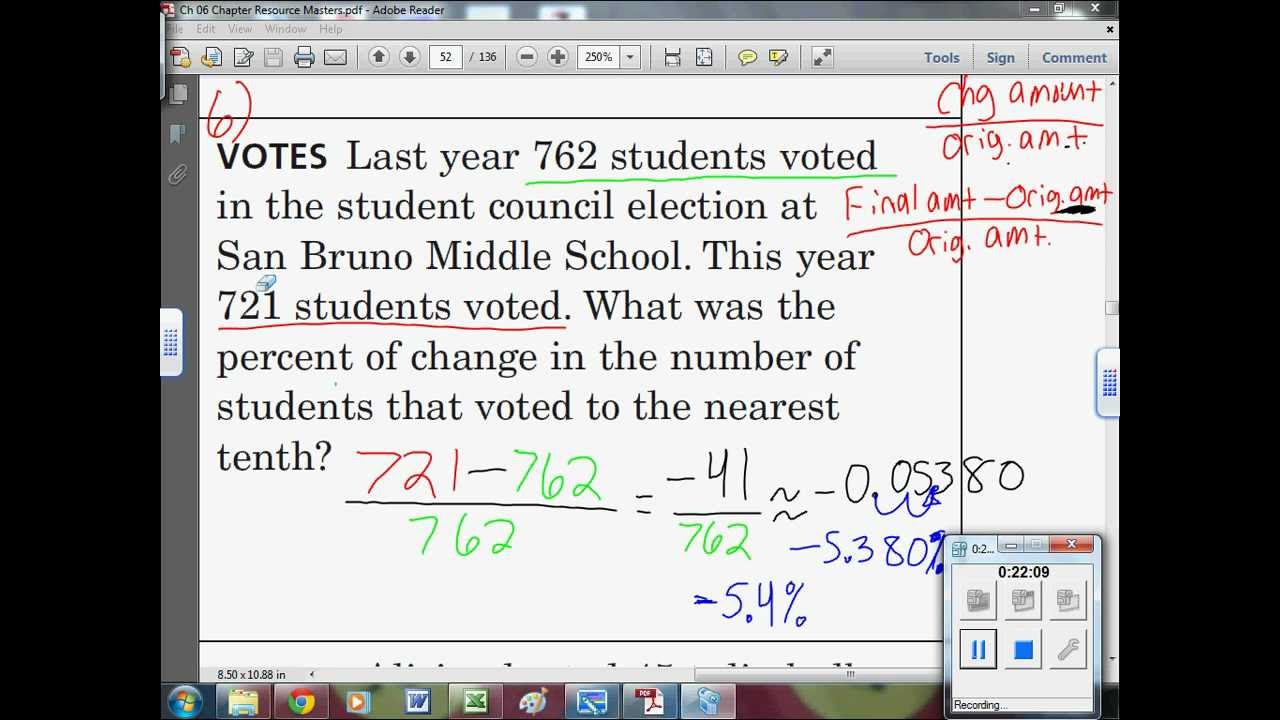 Ch 06 Chapter Resource Masters.pdf - Adobe Reader
File Edit View Window Help
52 / 136 250% Tools Sign Comment
6)
Chg amount
orig. amt.
VOTES Last year 762 students voted
in the student council election at
Final amt - Orig. amt
Orig. amt.
San Bruno Middle School. This year
721 students voted. What was the
percent of change in the number of
students that voted to the nearest
tenth?
721 - 762
762
= -41
762
≈ -0.05380
-5.380%
-5.4%
0:2...
0:22:09
Recording...
8.50 x 10.88 in